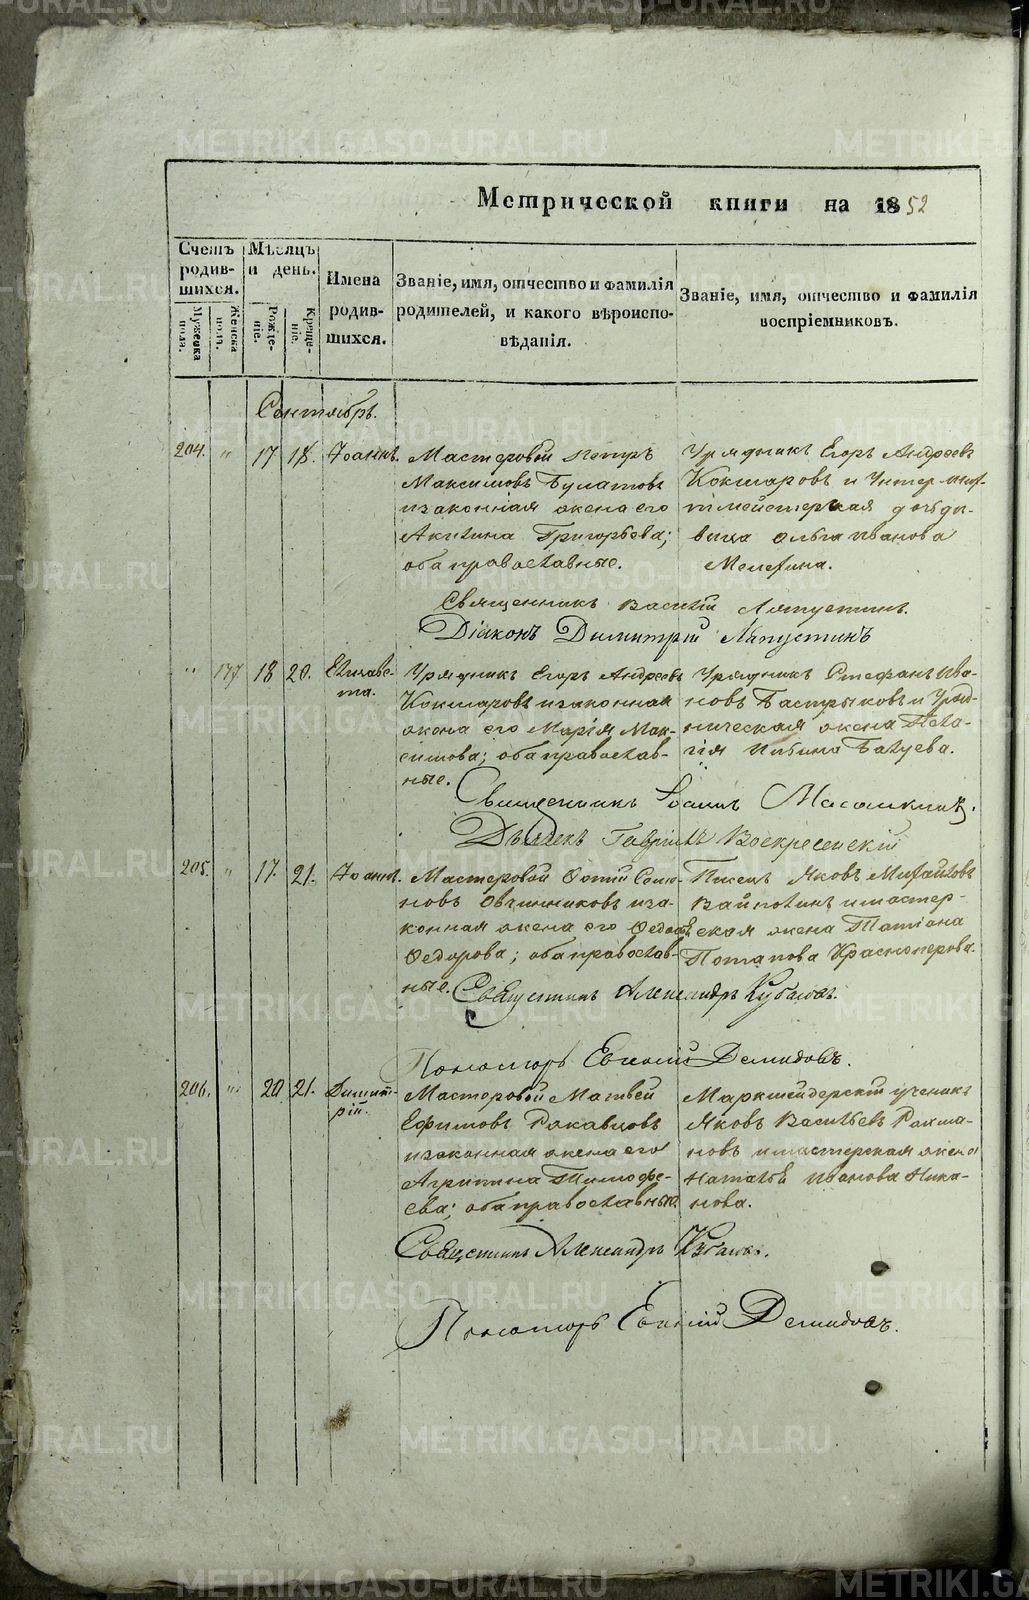 Метрической книги на 1852
Счетъ родившихся.
Мужеска пола.
Женска пола.
Мѣсяцъ и день.
Рожденіе.
Крещеніе.
Имена родившихся.
Званіе, имя, отчество и фамилія родителей, и какого вѣроисповѣданія.
Званіе, имя, отчество и фамилія воспріемниковъ.
Сентябрь.
204. " 17 18. Іоаннъ.
Мастеровой Петръ
Максимовъ Булатовъ
и законная жена его
Акилина Григорьева;
оба православные.
Урядникъ Егоръ Андреевъ
Кокшаровъ и Унтер-шихтмейстерская дочь дѣвица Ольга Иванова
Священникъ Василій Ляпустинъ.
Діаконъ Димитрій Ляпустинъ
" 177 18 20. Елизавета.
Урядникъ Егоръ Андреевъ
Кокшаровъ и законная
жена его Марія Максимова; оба православные.
Урядникъ Стефанъ Ивановъ Бастрыковъ и Урядническая жена Пелагія
Священникъ Іоаннъ
Дьячекъ Гавріилъ Воскресенскій
205. " 17. 21. Іоаннъ.
Мастеровой Фотій
Овчинниковъ и законная жена его
Федорова; оба православные.
Писецъ Яковъ Михайловъ
и мастерская жена Татіана
Потапова Красноперова.
Священникъ Александръ
Пономарь Евгеній Демидовъ.
206. " 20 21. Димитрій.
Мастеровой Матвей
Ефимовъ
и законная жена его
Агрипина Тимофеева; оба православные.
Маркшейдерскій ученикъ
Яковъ Васильевъ
и мастерская жена
Наталья Иванова
Священникъ Александръ
Пономарь Евгеній Демидовъ.
METRIKI.GASO-URAL.RU